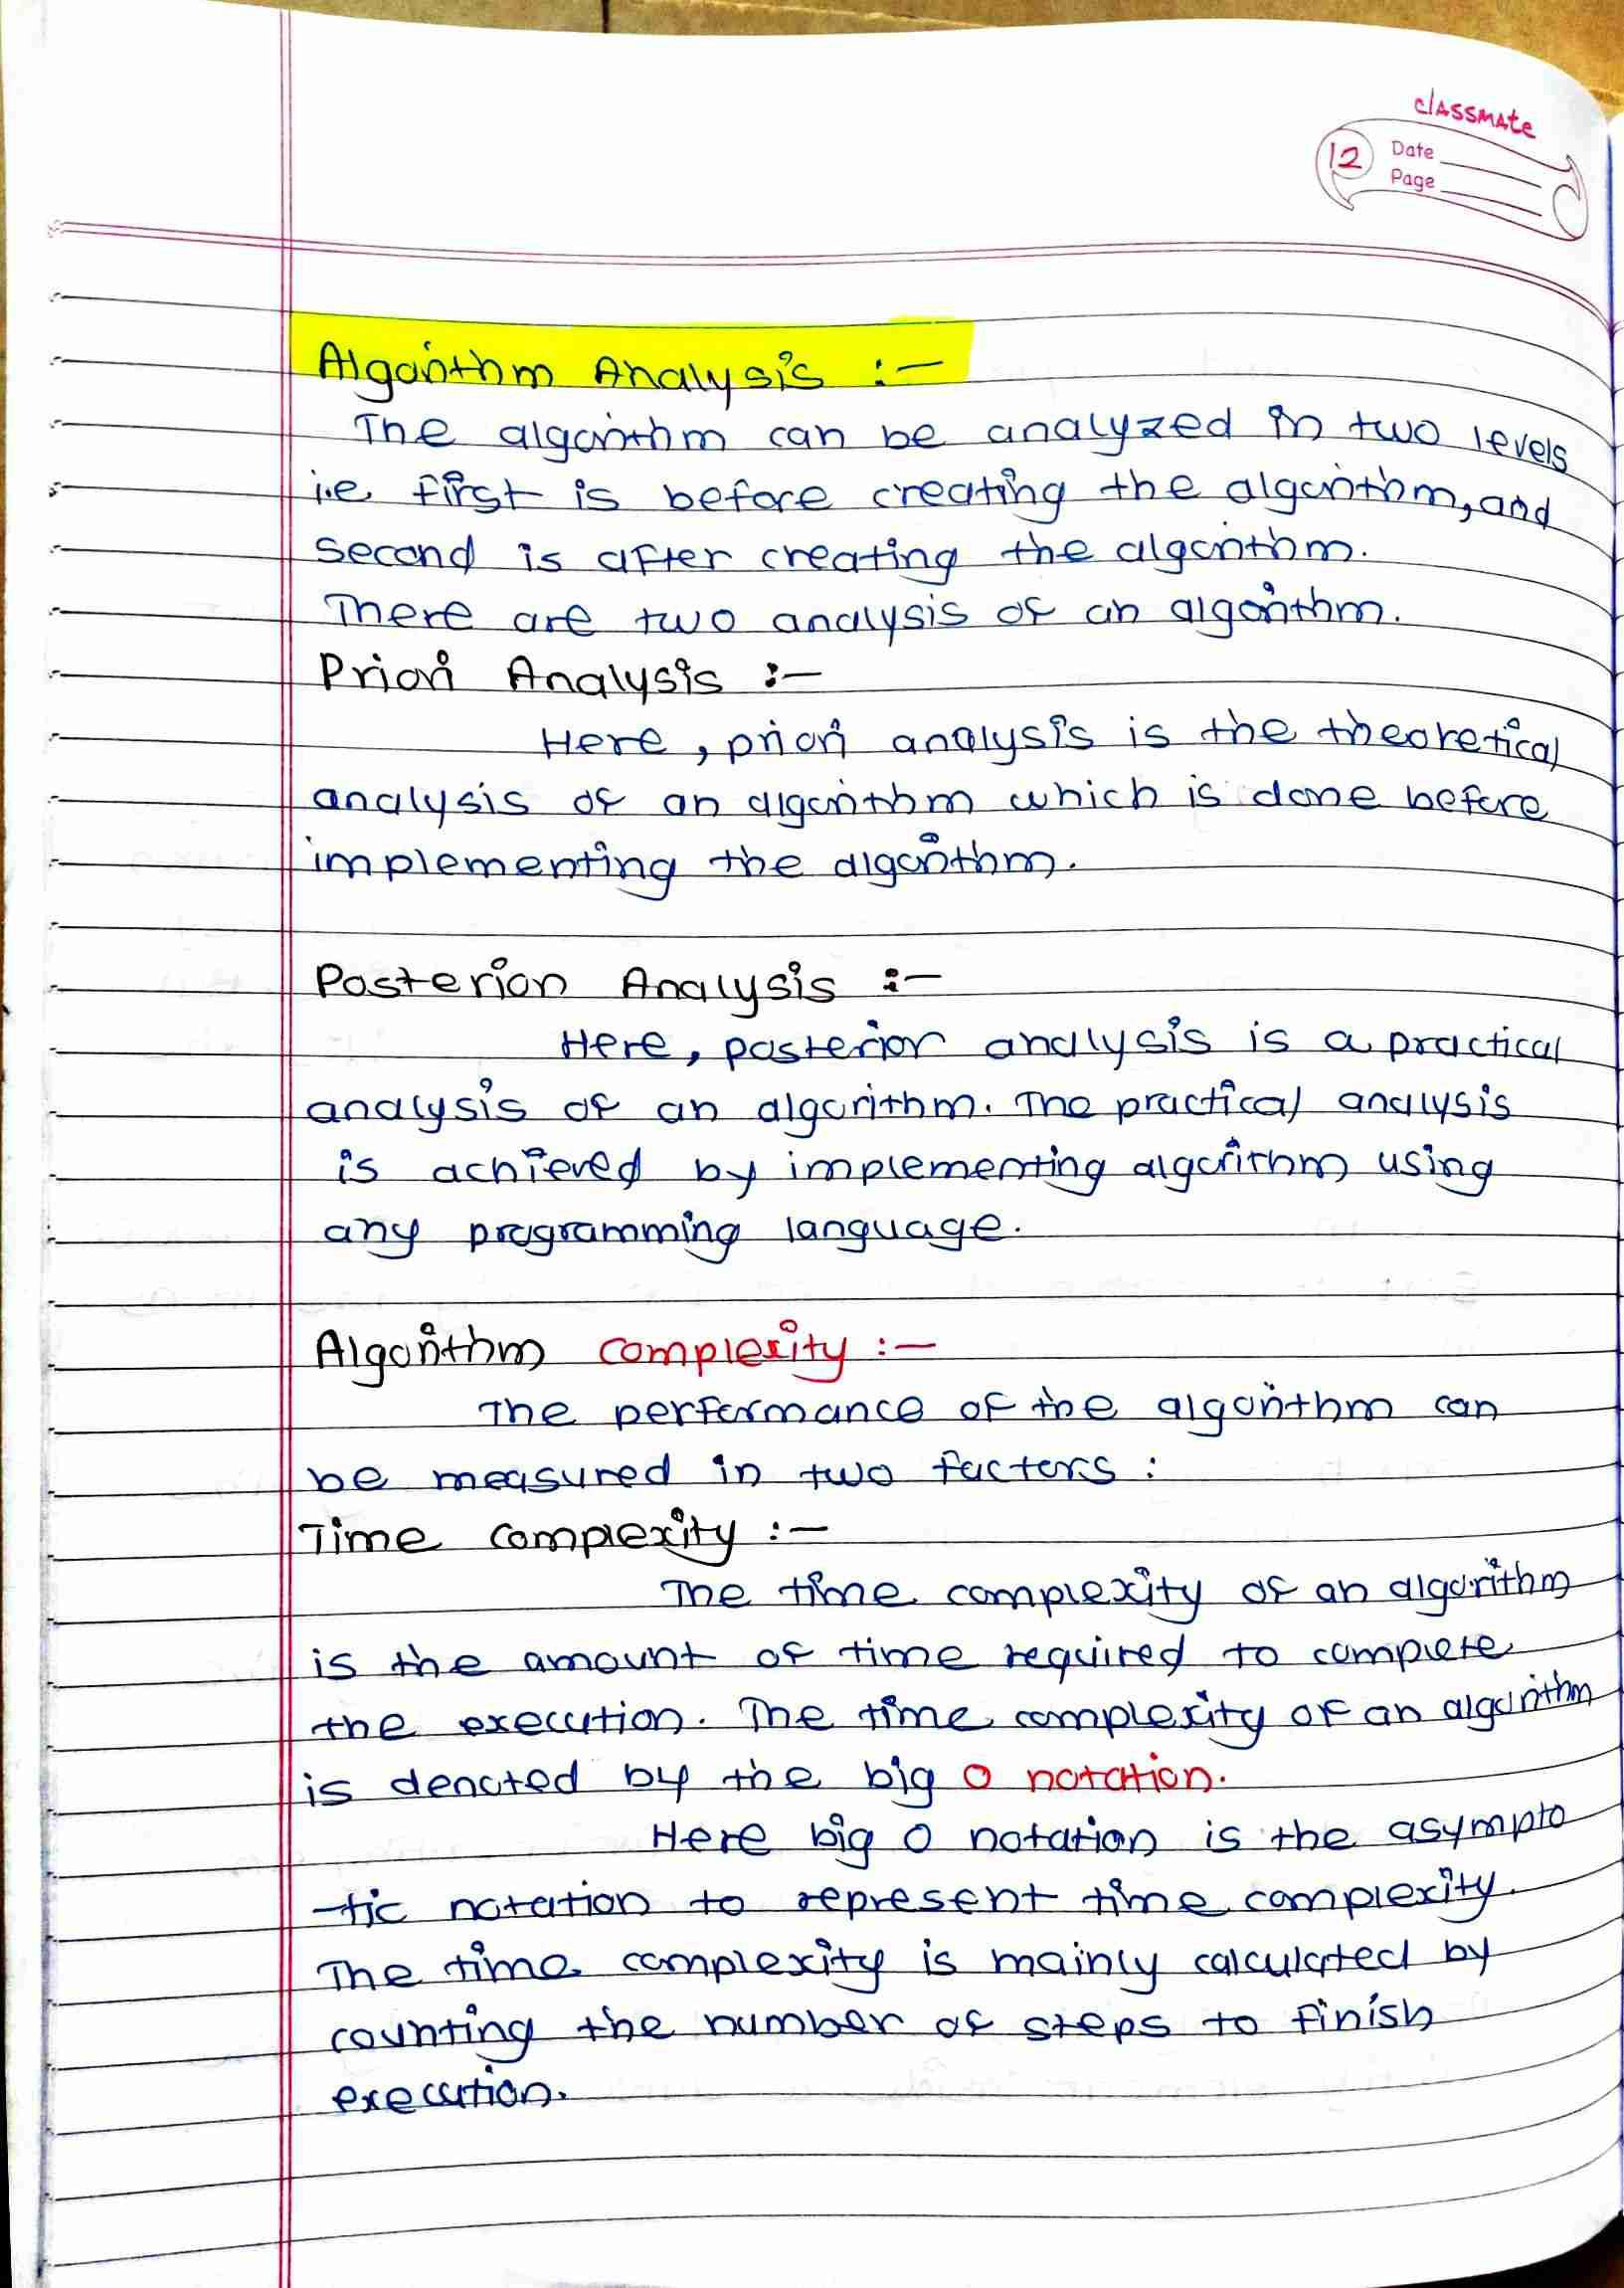 classmate
12 Date
Page
Algorithm Analysis :-
The algorithm can be analyzed in two levels
i.e. first is before creating the algorithm, and
second is after creating the algorithm.
There are two analysis of an algorithm.
Priori Analysis :-
Here, priori analysis is the theoretical
analysis of an algorithm which is done before
implementing the algorithm.
Posterior Analysis :-
Here, posterior analysis is a practical
analysis of an algorithm. The practical analysis
is achieved by implementing algorithm using
any programming language.
Algorithm complexity :-
The performance of the algorithm can
be measured in two factors :
Time complexity :-
The time complexity of an algorithm
is the amount of time required to complete
the execution. The time complexity of an algorithm
is denoted by the big O notation.
Here big O notation is the asympto
-tic notation to represent time complexity.
The time complexity is mainly calculated by
counting the number of steps to finish
execution.